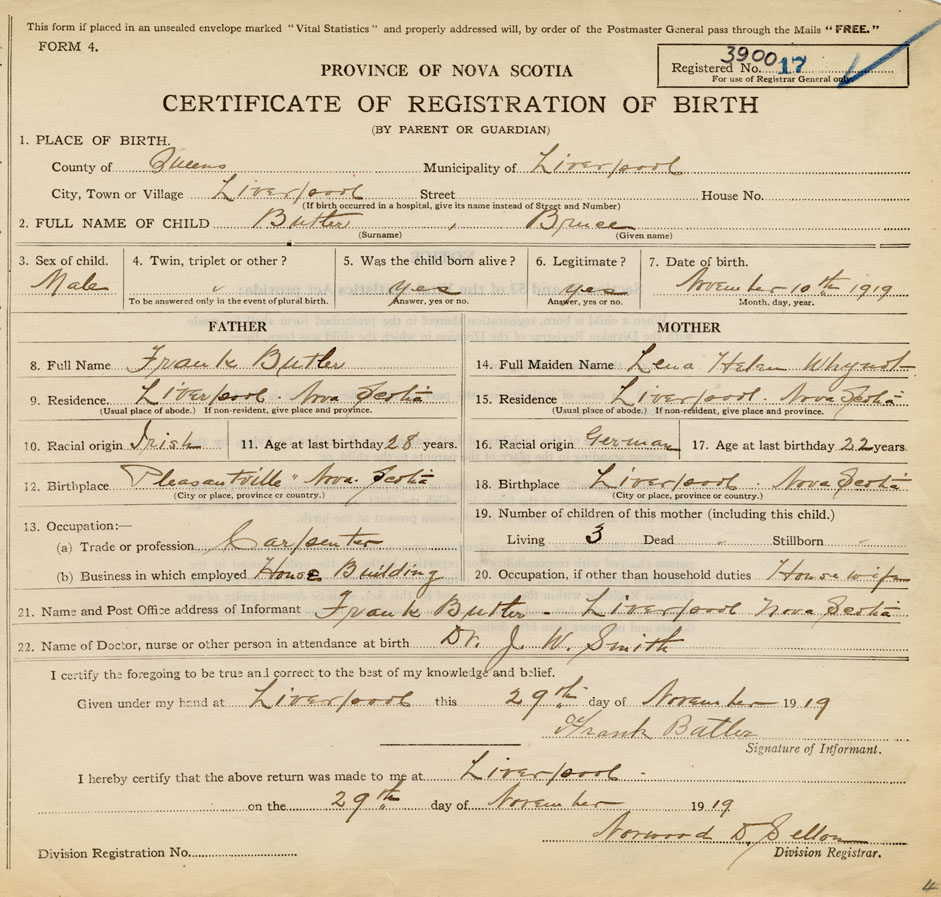 This form if placed in an unsealed envelope marked "Vital Statistics" and properly addressed will, by order of the Postmaster General pass through the Mails "FREE."
FORM 4.
Registered No. 3900 17
For use of Registrar General only.
PROVINCE OF NOVA SCOTIA
CERTIFICATE OF REGISTRATION OF BIRTH
(BY PARENT OR GUARDIAN)
1. PLACE OF BIRTH.
County of Queens Municipality of Liverpool
City, Town or Village Liverpool Street House No.
(If birth occurred in a hospital, give its name instead of Street and Number)
2. FULL NAME OF CHILD Butler , Bruce
(Surname) (Given name)
3. Sex of child. 4. Twin, triplet or other? 5. Was the child born alive? 6. Legitimate? 7. Date of birth.
Male " yes yes November 10th 1919
To be answered only in the event of plural birth. Answer, yes or no. Answer, yes or no. Month, day, year.
FATHER MOTHER
8. Full Name Frank Butler 14. Full Maiden Name Lena Helen Whynot
9. Residence. Liverpool. Nova Scotia 15. Residence Liverpool. Nova Scotia
(Usual place of abode.) If non-resident, give place and province. (Usual place of abode.) If non-resident, give place and province.
10. Racial origin Irish 11. Age at last birthday 28 years. 16. Racial origin German 17. Age at last birthday 22 years.
12. Birthplace Pleasantville " Nova Scotia 18. Birthplace Liverpool. Nova Scotia
(City or place, province or country.) (City or place, province or country.)
13. Occupation:— 19. Number of children of this mother (including this child.)
(a) Trade or profession Carpenter Living 3 Dead " Stillborn "
(b) Business in which employed House Building 20. Occupation, if other than household duties Housewife
21. Name and Post Office address of Informant Frank Butler - Liverpool Nova Scotia
22. Name of Doctor, nurse or other person in attendance at birth Dr. J. W. Smith
I certify the foregoing to be true and correct to the best of my knowledge and belief.
Given under my hand at Liverpool this 29th day of November 1919
Frank Butler
Signature of Informant.
I hereby certify that the above return was made to me at Liverpool.
on the 29th day of November 1919
Norwood D.
Division Registration No. Division Registrar.
4